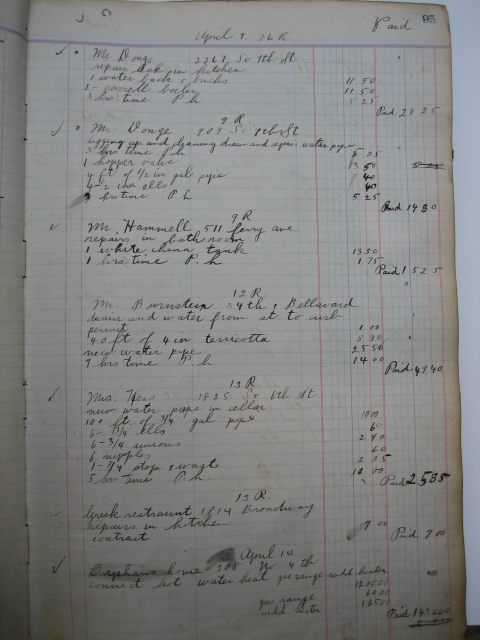 95
Paid
April 9. 26 R
Mr Donge 2267 So 9th St
repair sink in kitchen
1 water back & bucks 11 50
1 - garrell boiler 11 50
3 hrs time P h 5 25
Paid 28 25
9 R
Mr Donge 909 So 9th St
and cleaning drain and repair water pipe
3 hrs time P h 5 25
1 hopper valve 3 50
4 ft of 1/2 in gal pipe 40
4-2 in ells 40
3 hrs time P h 5 25
Paid 14 80
9 R
Mr. Hammell 511 ferry ave
repairs in bath room
1 white china tank 13 50
1 hrs time P. h 1 75
Paid 15 25
12 R
Mr. Burnstein 34th & Bellavard
drain and water from st. to curb
permit 1 00
40 ft of 4 in terricotta 8 90
new water pipe 25 50
9 hrs time P h 14 00
Paid 49 40
13 R
Mrs. Hess 1825 So 6th St
new water pipe in cellar
100 ft. of 3/4 gal pipe 10 00
6- 3/4 ells 60
6-3/4 unions 2 40
6 nipples 60
1-3/4 stop & wast 2 25
5 hrs time P. h. 10 00
Paid 25 85
13 R.
Greek restraunt 1214 Broadway
repairs in kitchen
contract 7 00
Paid 7 00
April 14
Orphans home 308 No 4th
connect hot water heat gas range rudd heater
125 00
gas range 60 00
rudd heater 165 00
Paid 1430 00